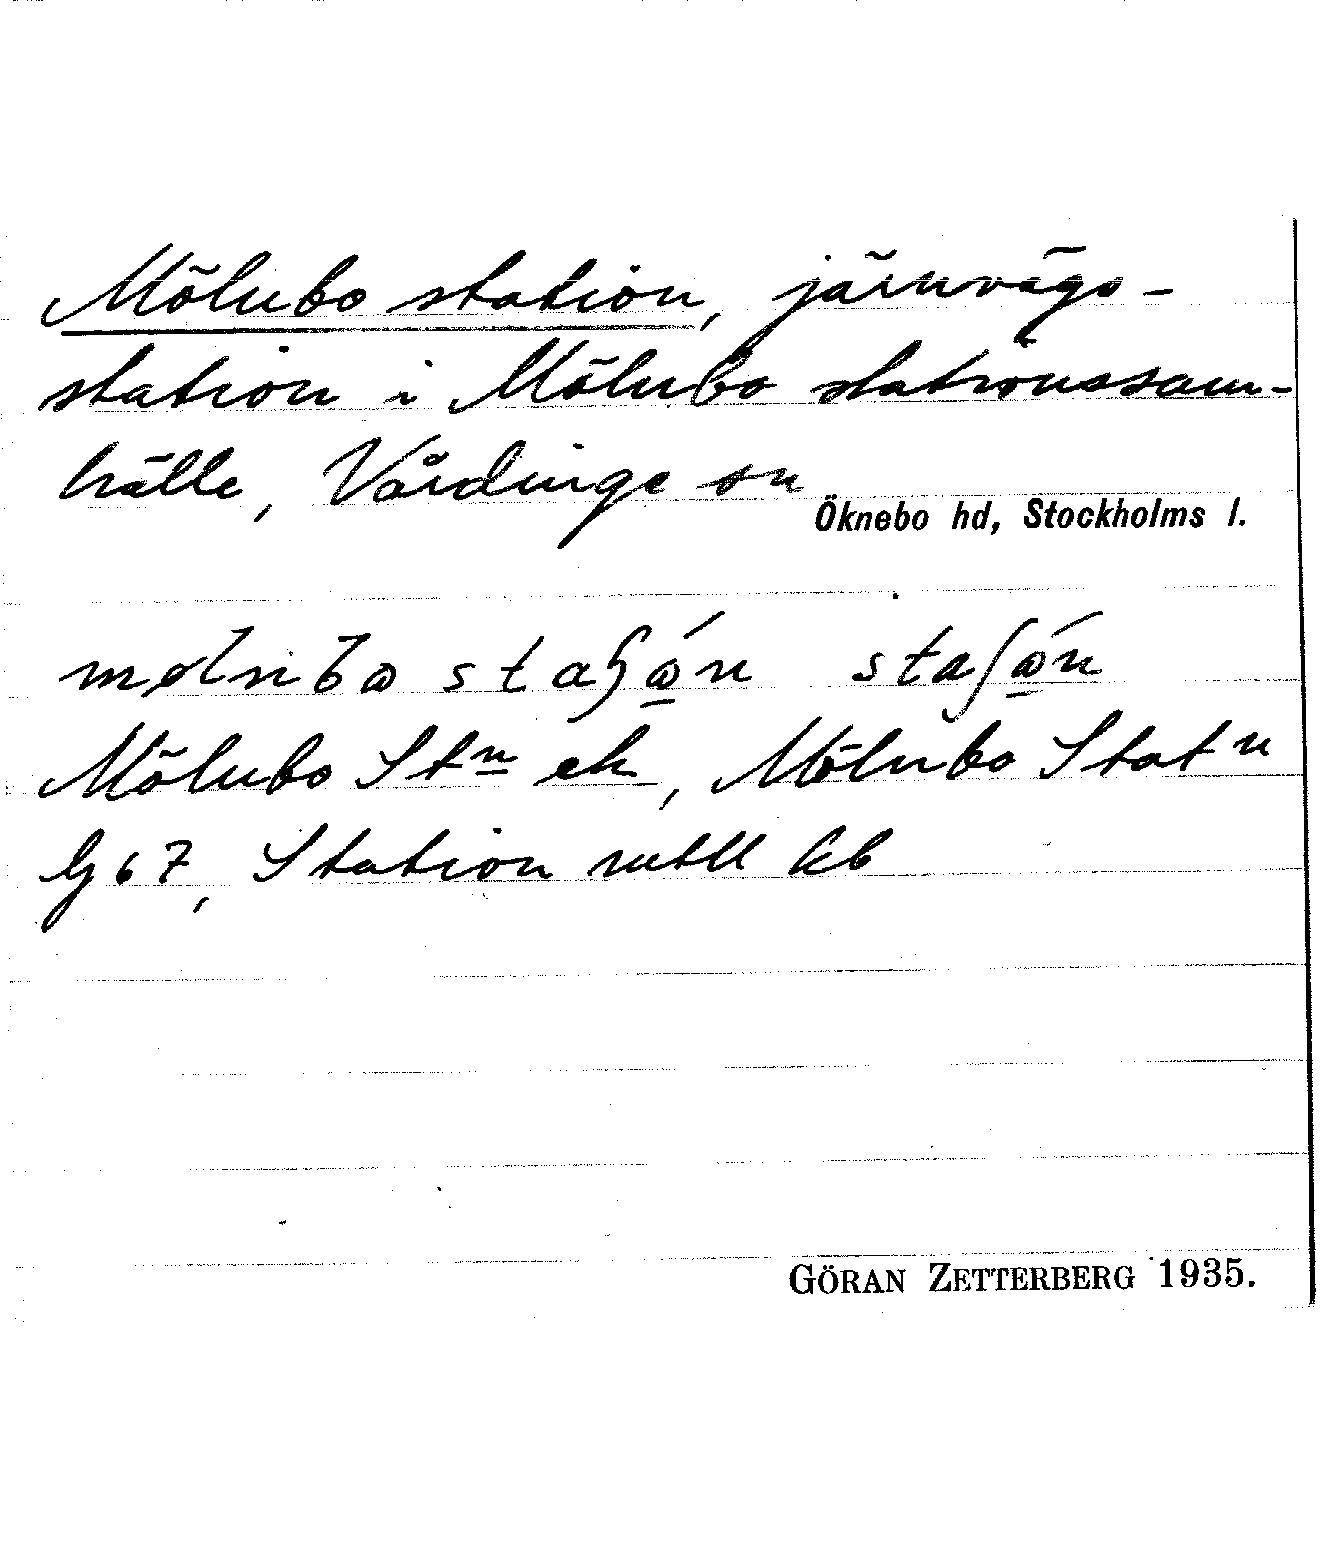 Mölnbo station, järnvägs-
station i Mölnbo stationssam-
hälle, Vårdinge sn
Öknebo hd, Stockholms l.
mølnbo staʃón staʃón
Mölnbo Stn ek, Mölnbo Statn
G 67, Station mtll kb
GÖRAN ZETTERBERG 1935.